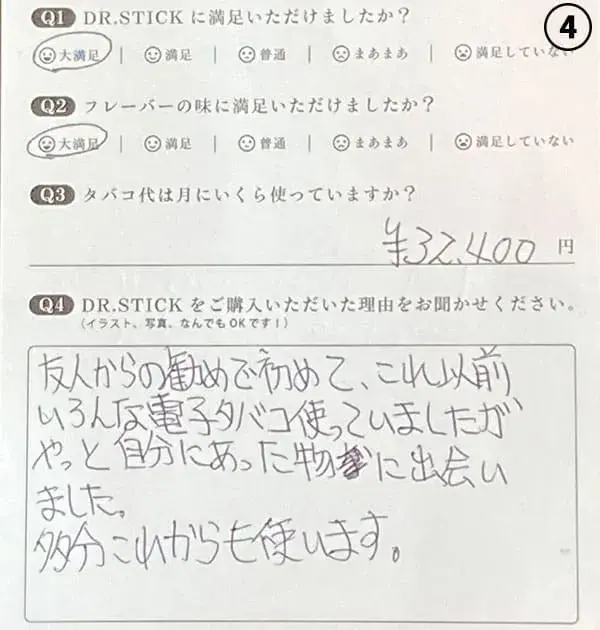 ④
Q1 DR.STICK に満足いただけましたか?
大満足 | 満足 | 普通 | まあまあ | 満足していない
Q2 フレーバーの味に満足いただけましたか?
大満足 | 満足 | 普通 | まあまあ | 満足していない
Q3 タバコ代は月にいくら使っていますか?
¥32,400 円
Q4 DR.STICK をご購入いただいた理由をお聞かせください。
(イラスト、写真、なんでもOKです!)
友人からの勧めで初めて、これ以前
いろんな電子タバコ使っていましたが
やっと自分にあった物に出会い
ました。
多分これからも使います。